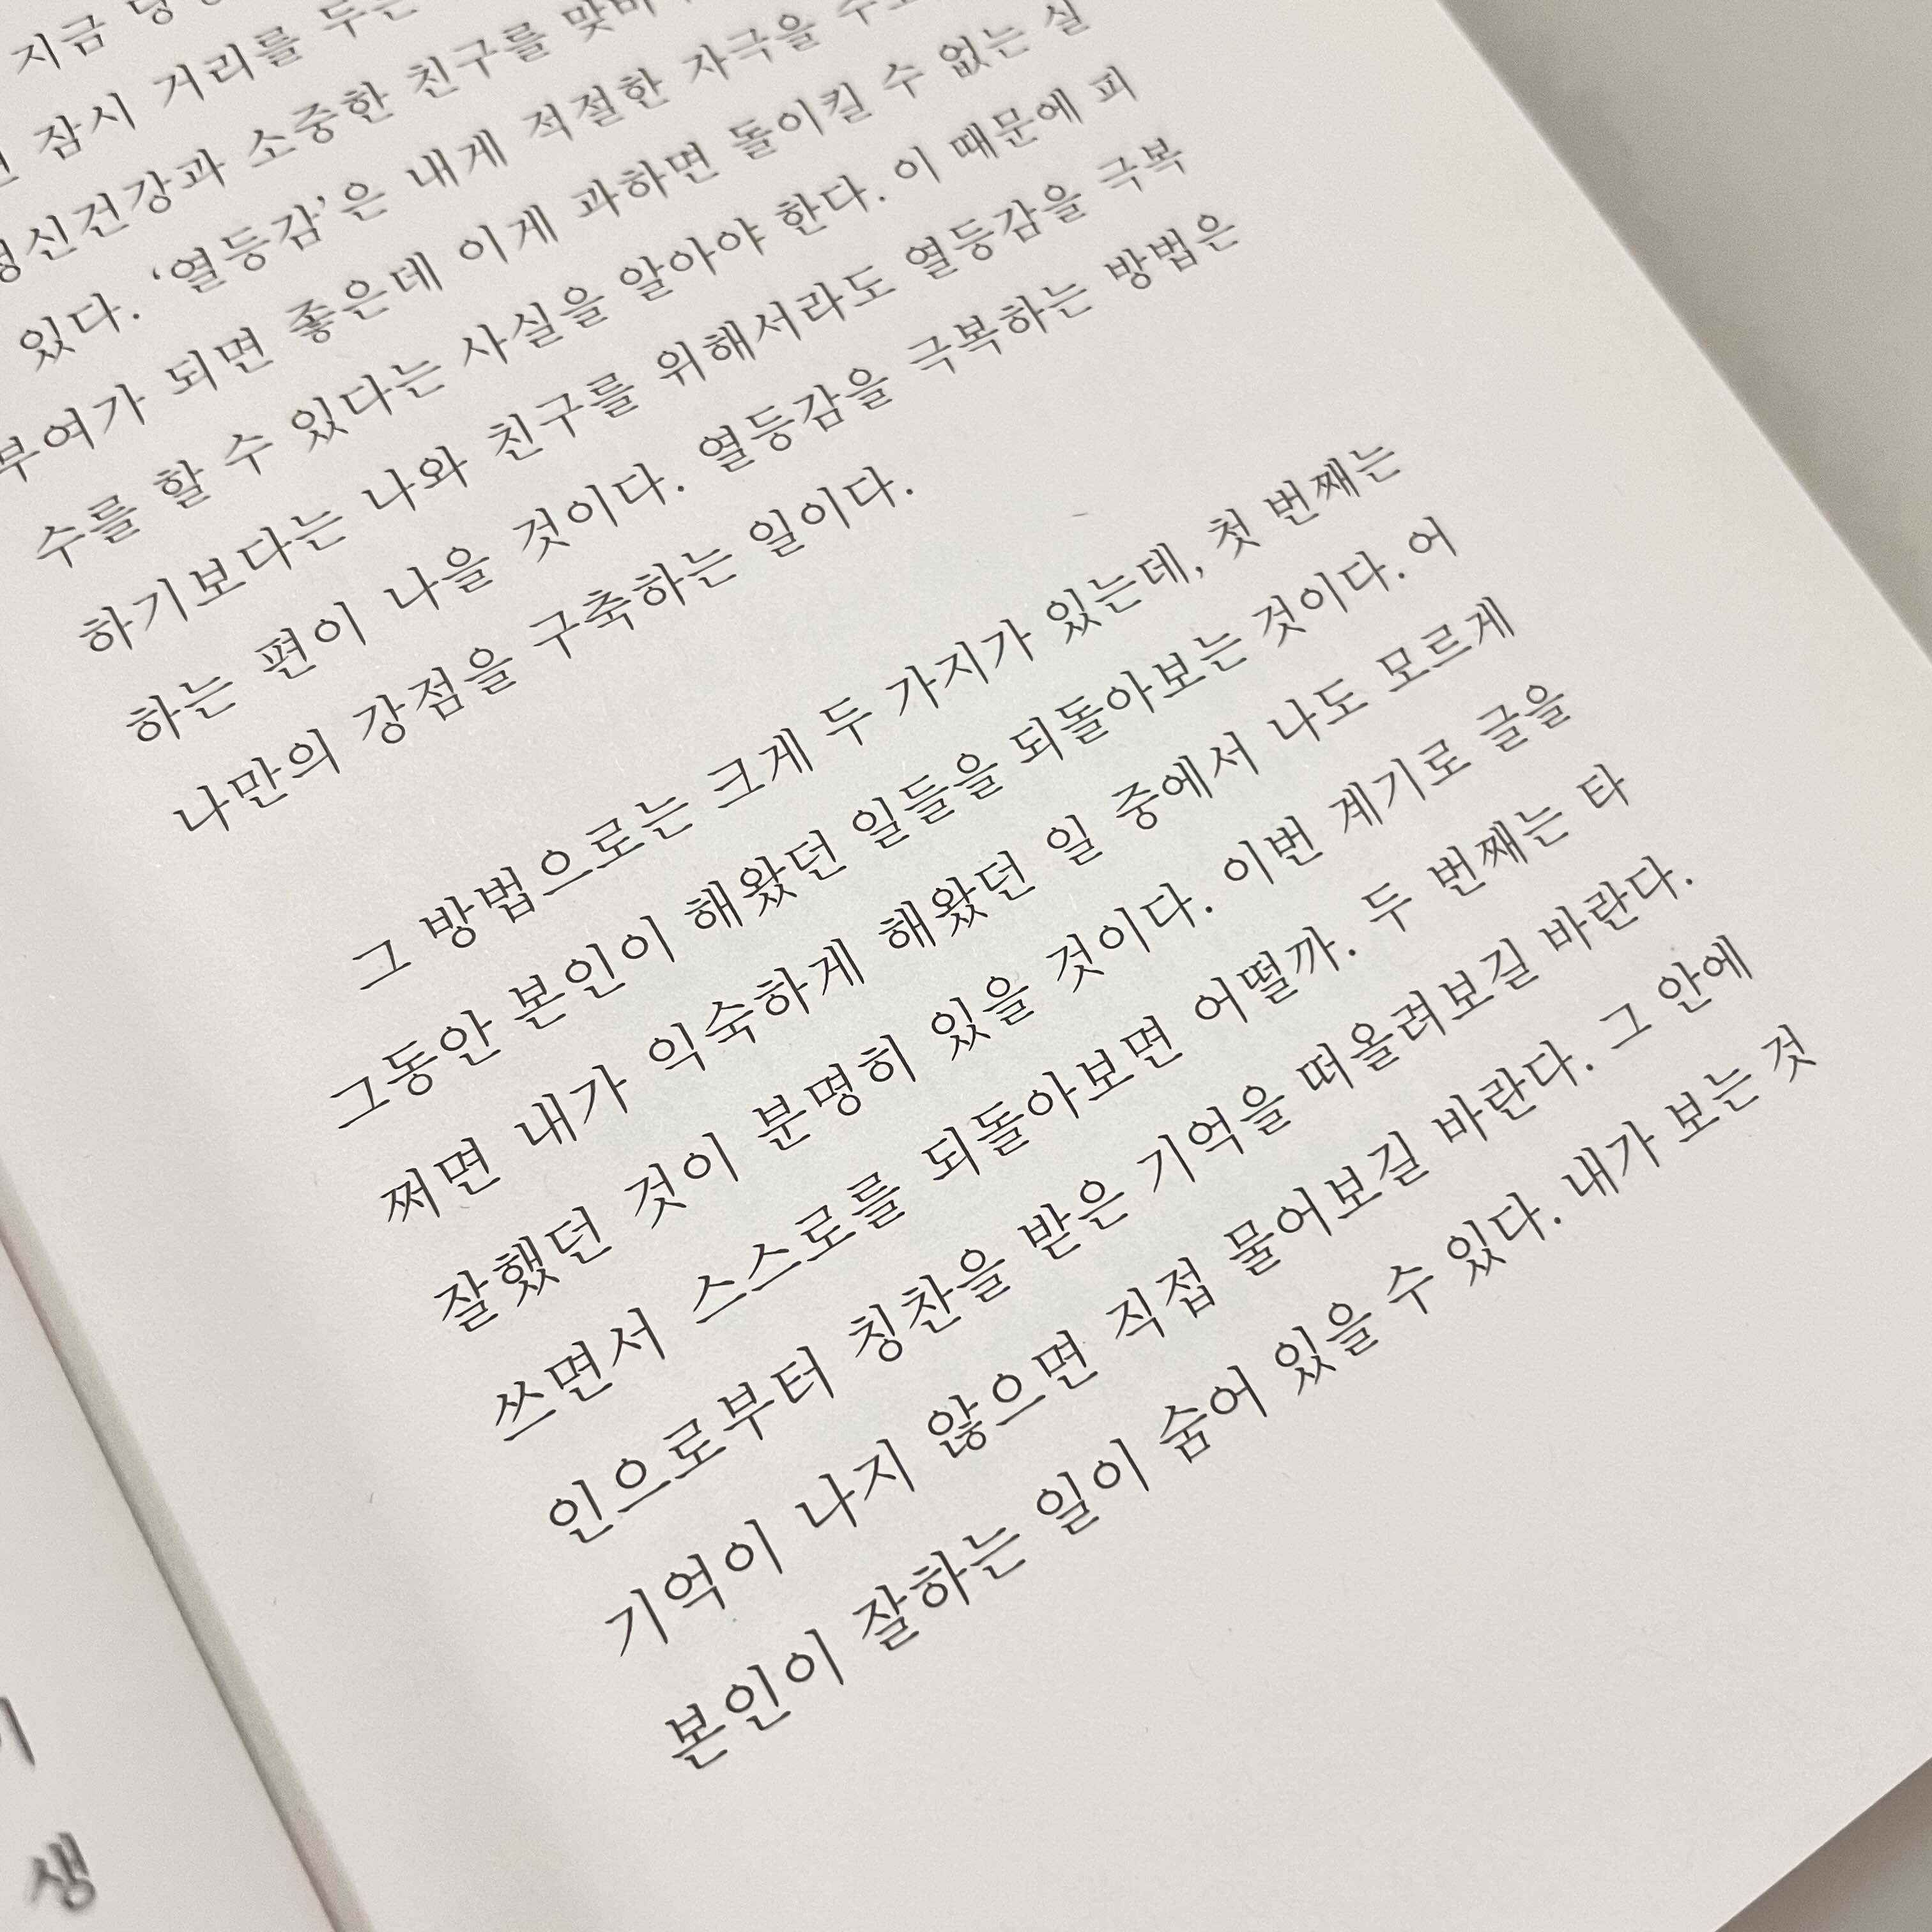 지금
잠시 거리를 두는
정신건강과 소중한 친구를
있다. ‘열등감’은 내게 적절한 자극을
부여가 되면 좋은데 이게 과하면 돌이킬 수 없는 실
수를 할 수 있다는 사실을 알아야 한다. 이 때문에 피
하기보다는 나와 친구를 위해서라도 열등감을 극복
하는 편이 나을 것이다. 열등감을 극복하는 방법은
나만의 강점을 구축하는 일이다.
그 방법으로는 크게 두 가지가 있는데, 첫 번째는
그동안 본인이 해왔던 일들을 되돌아보는 것이다. 어
쩌면 내가 익숙하게 해왔던 일 중에서 나도 모르게
잘했던 것이 분명히 있을 것이다. 이번 계기로 글을
쓰면서 스스로를 되돌아보면 어떨까. 두 번째는 타
인으로부터 칭찬을 받은 기억을 떠올려보길 바란다.
기억이 나지 않으면 직접 물어보길 바란다. 그 안에
본인이 잘하는 일이 숨어 있을 수 있다. 내가 보는 것
생